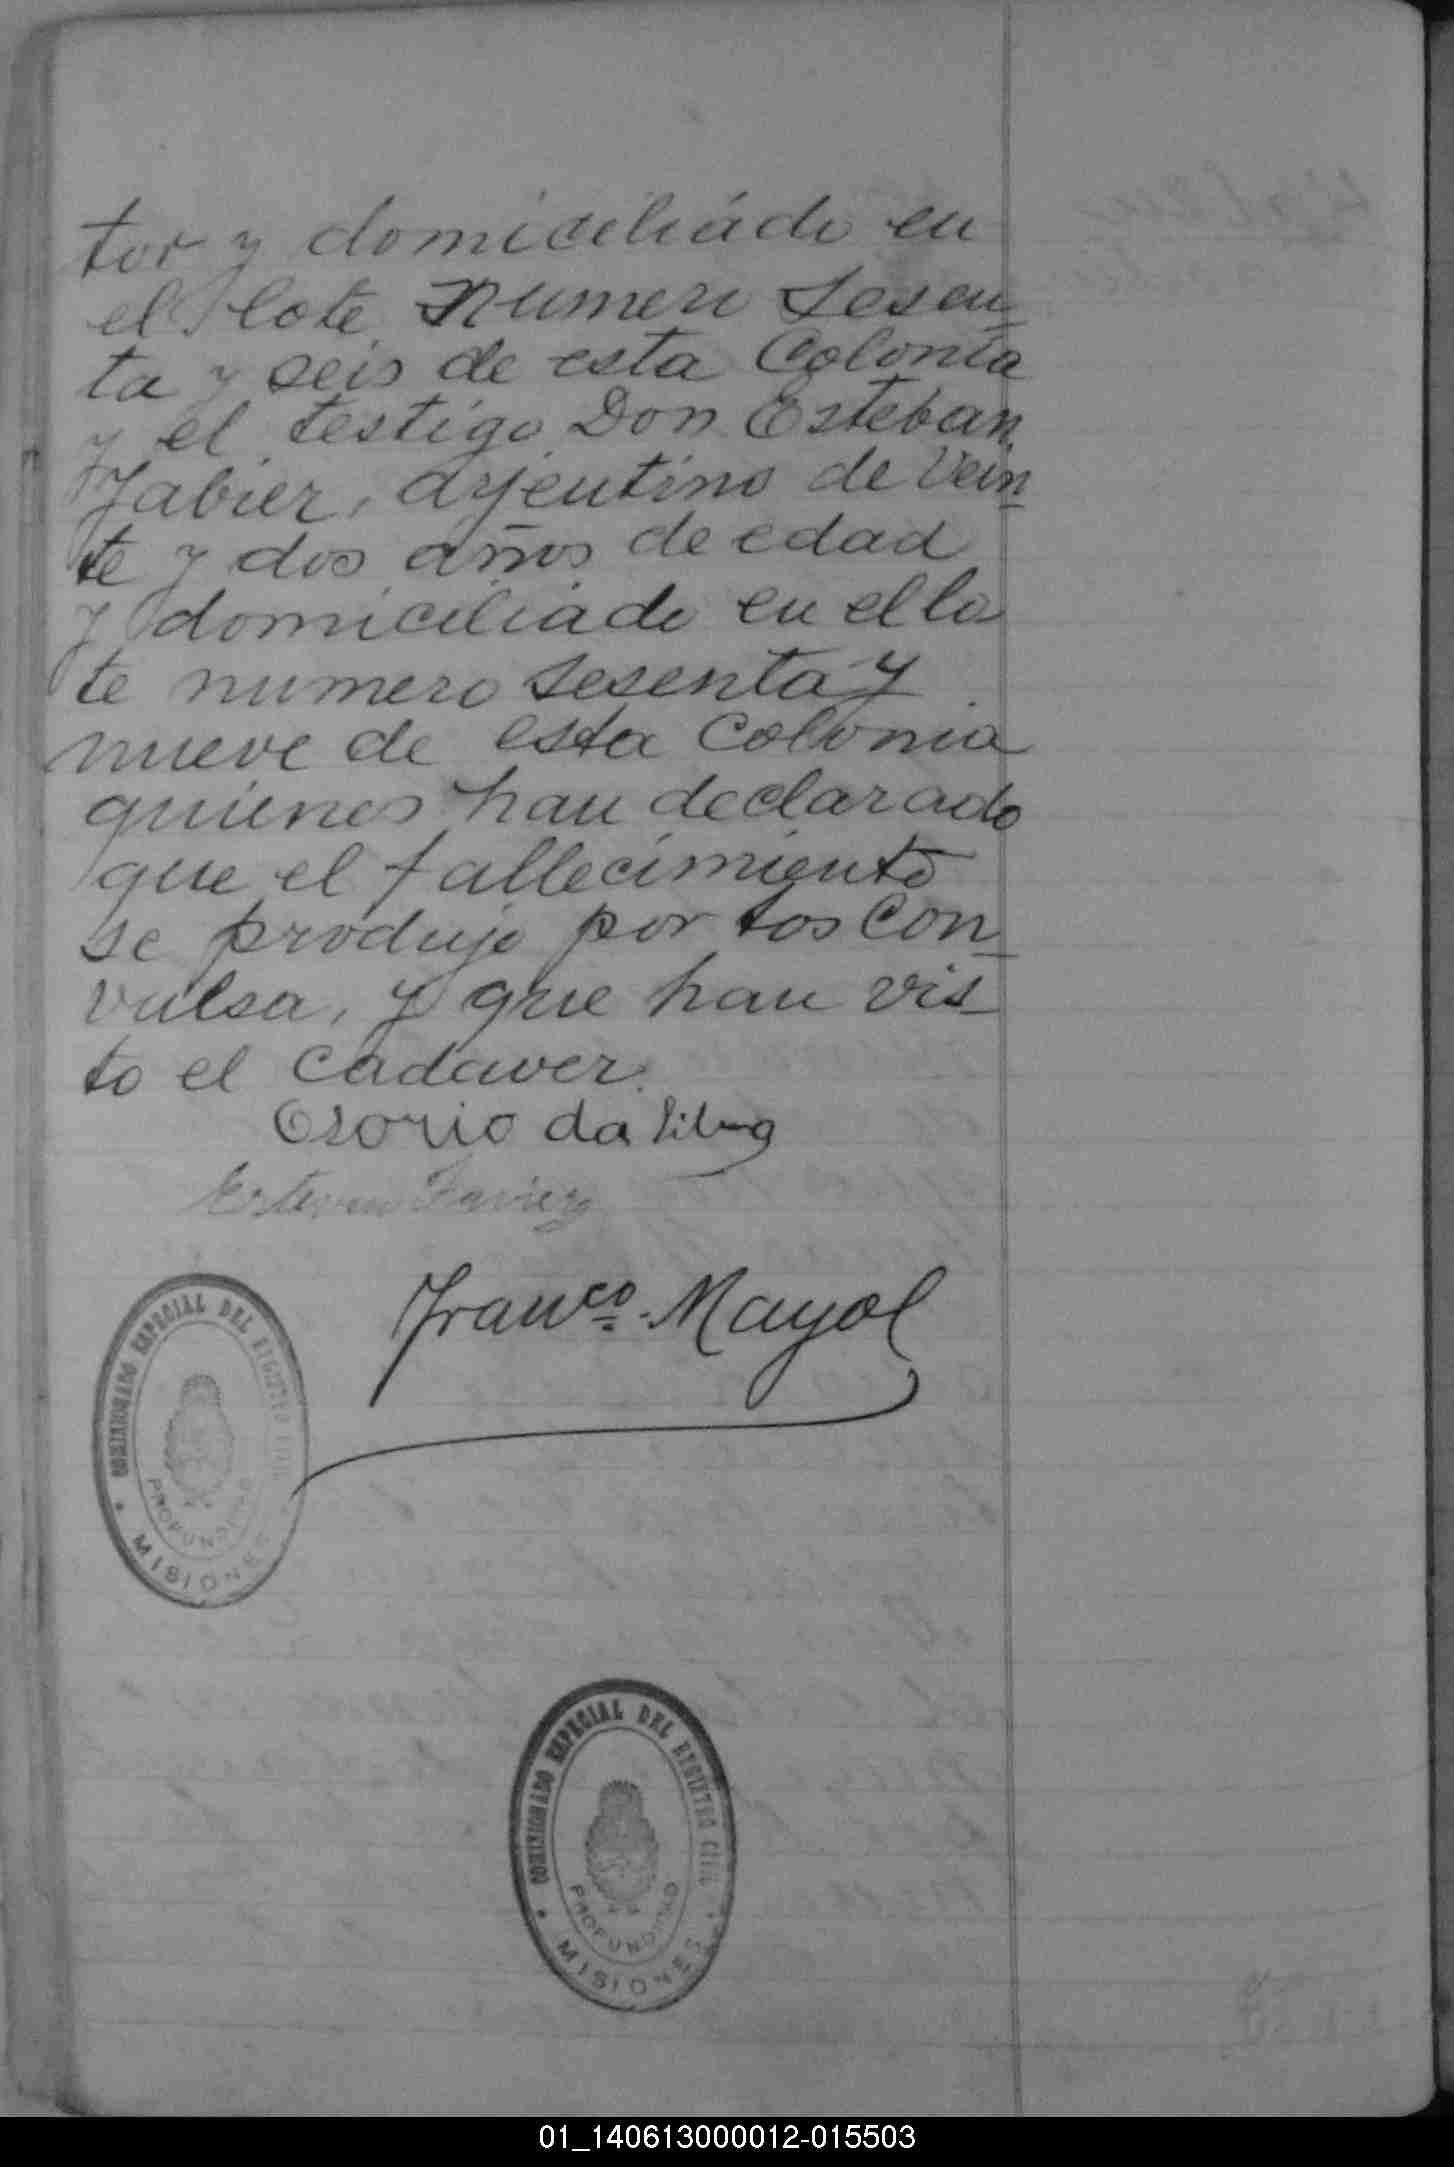 tor y domiciliádo en
el lote Numero Sesen-
ta y seis de esta Colonia
y el testigo Don Esteban
Jabier, arjentino de Vein-
te y dos años de edad
y domiciliado en el lo
te numero sesenta y
nueve de esta Colonia
quienes han declarado
que el fallecimiento
se produjo por tos Con-
vulsa, y que han vis-
to el cadaver.
Osorio da Silva
Estevan Javier
Franco. Mayol
COMISIONADO ESPECIAL DEL REGISTRO CIVIL
PROFUNDIDAD
MISIONES
COMISIONADO ESPECIAL DEL REGISTRO CIVIL
PROFUNDIDAD
MISIONES
01_140613000012-015503